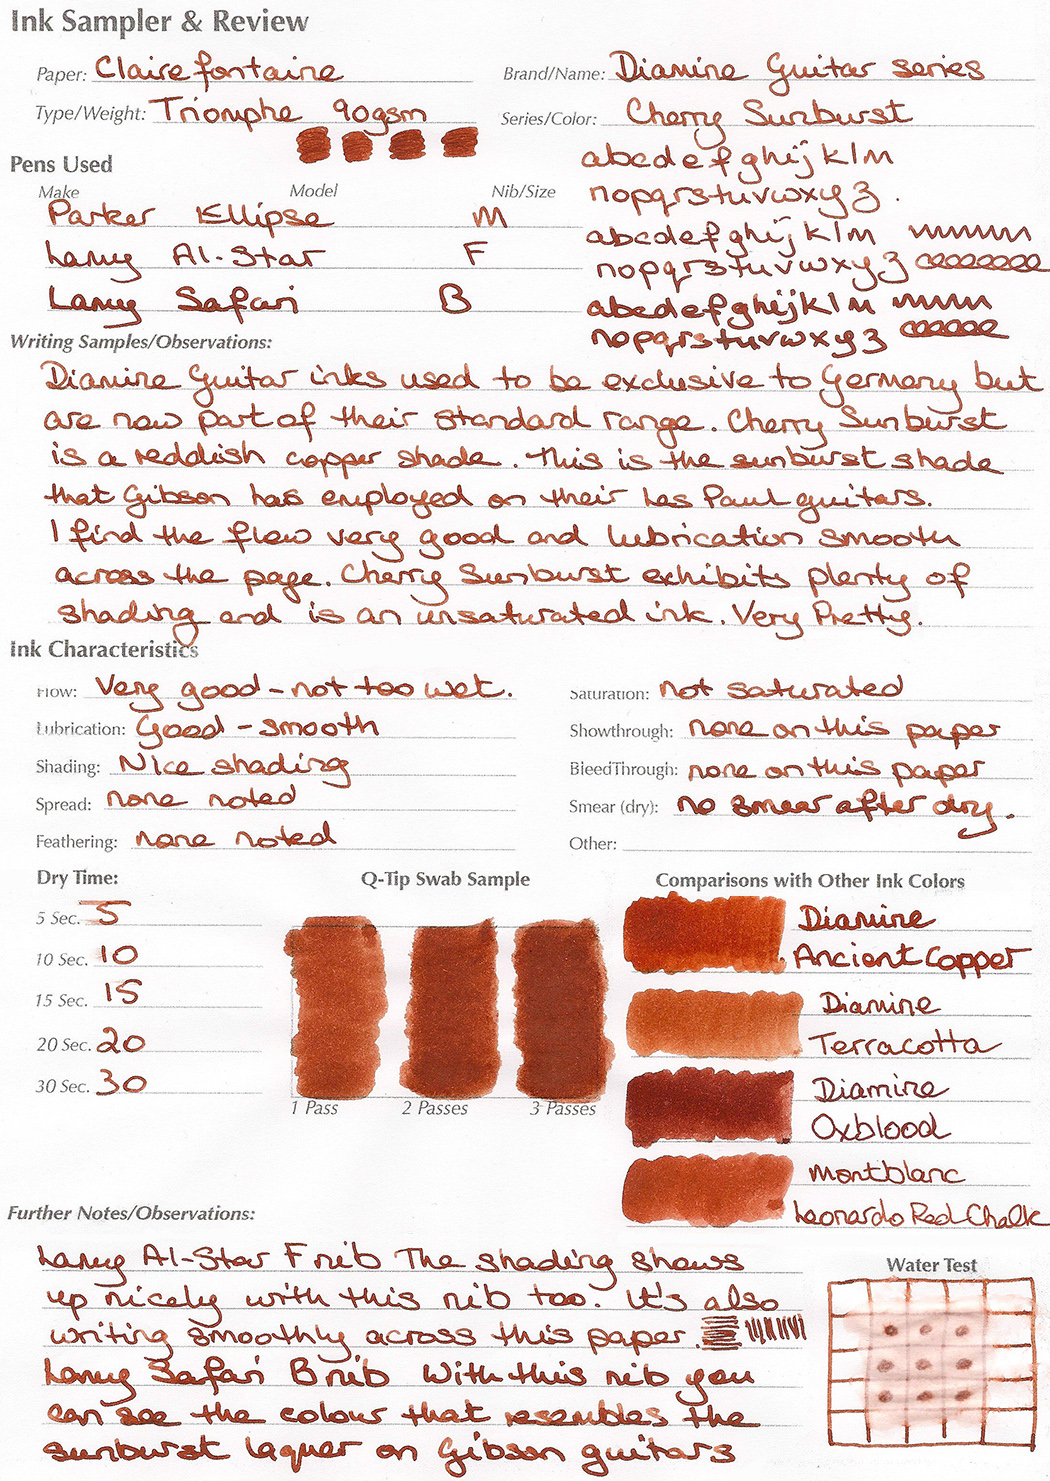 Ink Sampler & Review
Paper: Clairefontaine
Brand/Name: Diamine Guitar series
Type/Weight: Triomphe 90gsm
Series/Color: Cherry Sunburst
abcdefghijklm
nopqrstuvwxyz.
Pens Used
Make Model Nib/Size
Parker Ellipse M
abcdefghijklm
Lamy Al-Star F
nopqrstuvwxyz
Lamy Safari B
abcdefghijklm
nopqrstuvwxyz
Writing Samples/Observations:
Diamine Guitar inks used to be exclusive to Germany but
are now part of their standard range. Cherry Sunburst
is a reddish copper shade. This is the sunburst shade
that Gibson has employed on their Les Paul guitars.
I find the flow very good and lubrication smooth
across the page. Cherry Sunburst exhibits plenty of
shading and is an unsaturated ink. Very Pretty.
Ink Characteristics
Flow: Very good – not too wet.
Saturation: not saturated
Lubrication: Good – smooth
Showthrough: none on this paper
Shading: Nice shading
BleedThrough: none on this paper
Spread: none noted
Smear (dry): no smear after dry.
Feathering: none noted
Other:
Dry Time:
Q-Tip Swab Sample
Comparisons with Other Ink Colors
5 Sec. 5
10 Sec. 10
15 Sec. 15
20 Sec. 20
30 Sec. 30
1 Pass 2 Passes 3 Passes
Diamine
Ancient Copper
Diamine
Terracotta
Diamine
Oxblood
Montblanc
Leonardo Red Chalk
Further Notes/Observations:
Lamy Al-Star F nib The shading shows
up nicely with this nib too. It's also
writing smoothly across this paper.
Lamy Safari B nib With this nib you
can see the colour that resembles the
sunburst laquer on Gibson guitars
Water Test